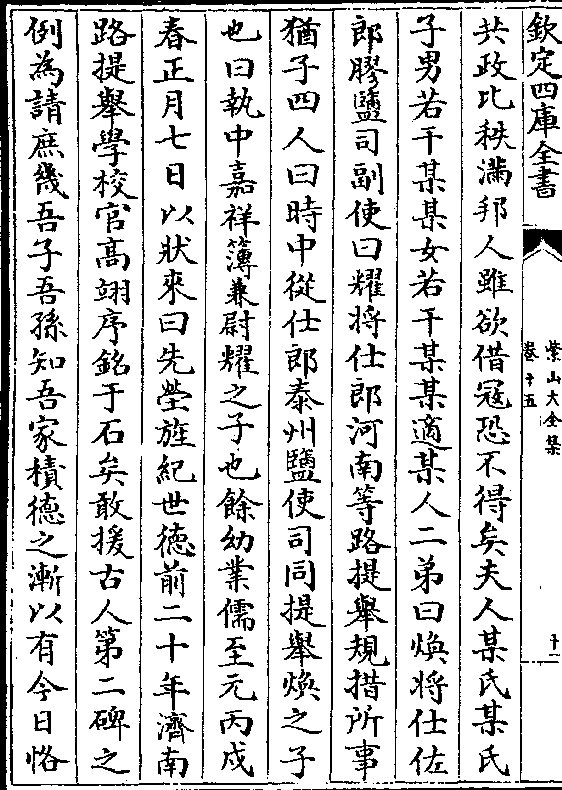 欽定四庫全書
紫山大全集
卷十五
十一
共政比秩滿邦人雖欲借冦恐不得矣夫人某氏某氏
子男若干某某女若干某某適某人二弟曰煥將仕佐
郎膠鹽司副使曰耀將仕郎河南等路提舉規措所事
猶子四人曰時中從仕郎泰州鹽使司同提舉煥之子
也曰執中嘉祥簿兼尉耀之子也餘幼業儒至元丙戍
春正月七日以狀來曰先塋旌紀世徳前二十年濟南
路提舉學校官髙翊序銘于石矣敢援古人第二碑之
例為請庶幾吾子吾孫知吾家積德之漸以有今日恪